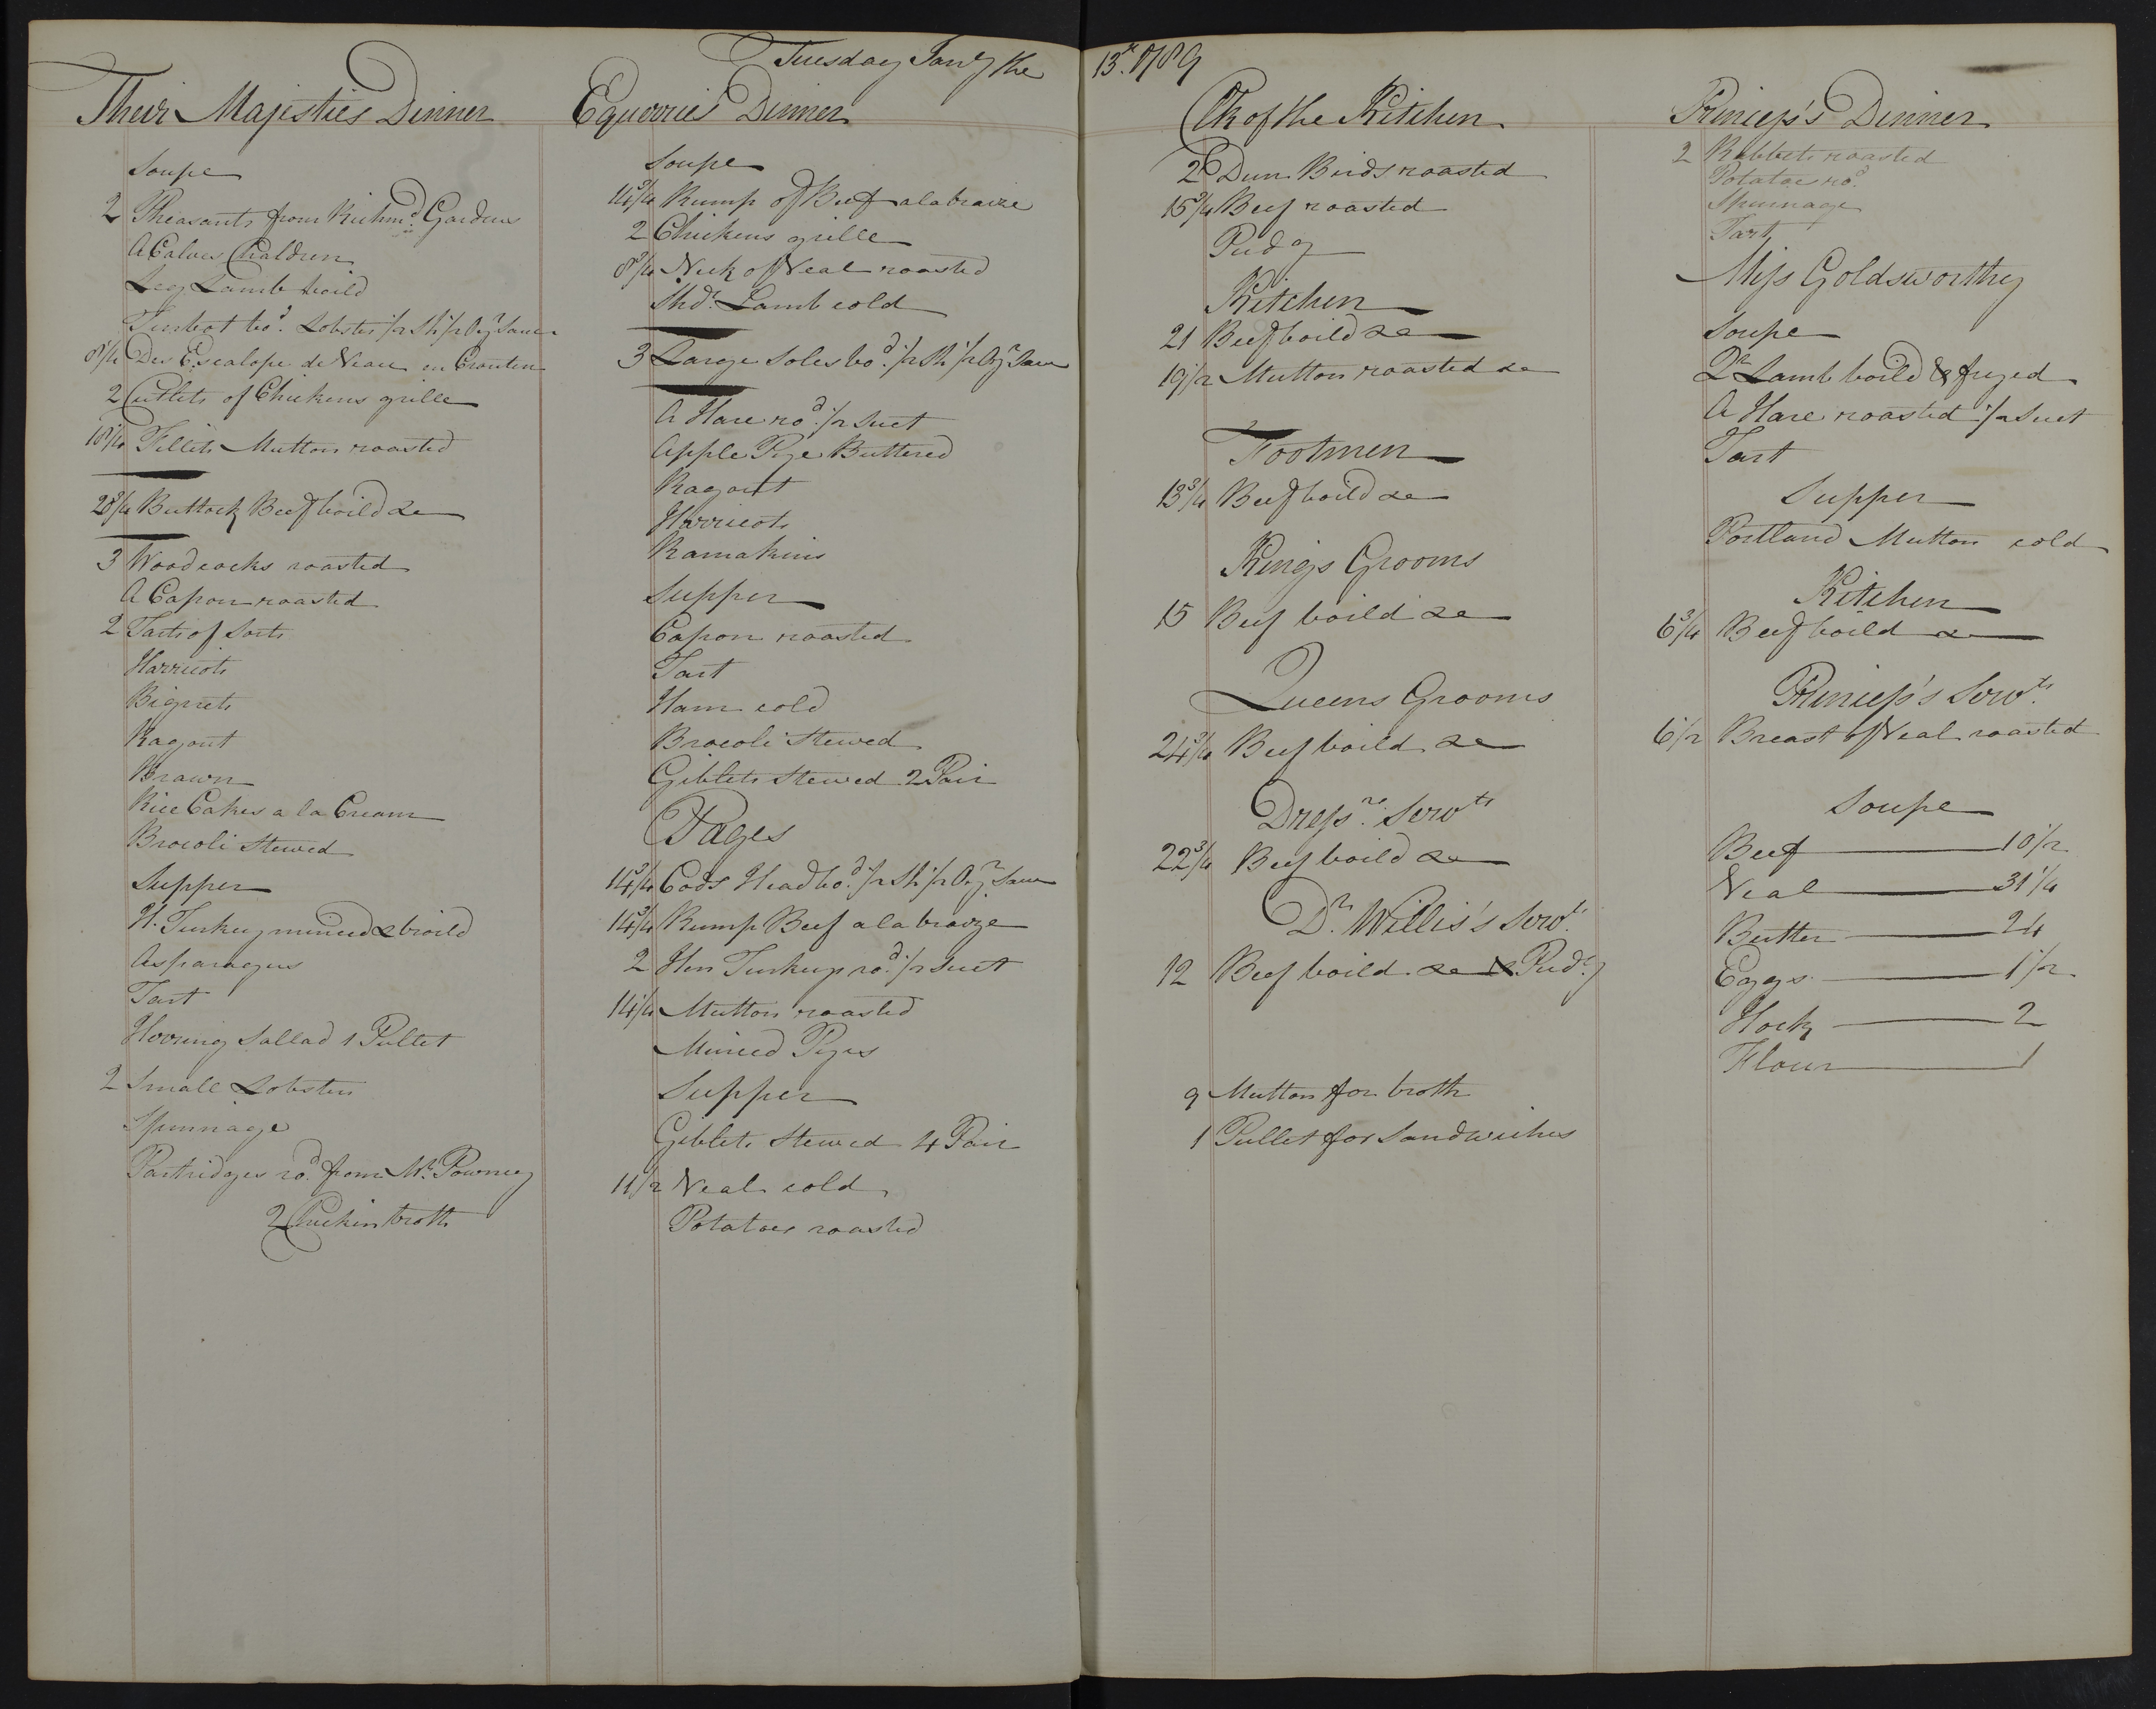 Tuesday Jany the 13th 1789
Their Majesties Dinner
Soupe
2 Pheasants from Richmd Gardens
A Calves Chaldren
Leg Lamb boild
Turbot bod Lobster 1/2 Sh 1/2 Oyr Sauce
8 1/4 Des Escalope de Veau en Crouten
2 Cutlets of Chickens grille
18 1/4 Fillets Mutton roasted
28 3/4 Buttock Beef boild &c
3 Woodcocks roasted
A Capon roasted
2 Tarts of Sorts
Harricots
Bignets
Ragout
Brawn
Rice Cakes a la Cream
Brocoli Stewed
Supper
H. Turkey minced & broild
Asparagus
Tart
Herring Sallad 1 Pullet
2 Small Lobsters
Spinnage
Partridges rod from Mr Powney
2 Chicken broth
Equerries Dinner
Soupe
14 3/4 Rump of Beef a la braize
2 Chickens grille
8 3/4 Neck of Veal roasted
Shdr Lamb cold
3 Large Soles bod 1/2 Sh 1/2 Oyr Sauce
A Hare rod 1/2 Suet
Apple Pye Buttered
Ragout
Harricots
Ramakins
Supper
Capon roasted
Tart
Ham cold
Brocoli Stewed
Giblets Stewed 2 Pair
Pages
14 3/4 Cods Head bod 1/2 Sh 1/2 Oyr Sauce
14 3/4 Rump Beef a la braize
2 Hen Turkeys rod 1/2 Suet
14 1/4 Mutton roasted
Minced Pyes
Supper
Giblets Stewed 4 Pair
11 1/2 Veal cold
Potatoes roasted
Clk of the Kitchen
2 Dun Birds roasted
15 3/4 Beef roasted
Pudg
Kitchen
21 Beef boild &c
19 1/2 Mutton roasted &c
Footmen
13 3/4 Beef boild &c
Kings Grooms
15 Beef boild &c
Queens Grooms
24 3/4 Beef boild &c
Dressrs Servts
22 3/4 Beef boild &c
Dr Willis's Servts
12 Beef boild &c & Pudg
9 Mutton for broth
1 Pullet for Sandwiches
Princess's Dinner
2 Rabbets roasted
Potatoe rod
Spinnage
Tart
Miss Goldsworthy
Soupe
Qr Lamb boild & fryed
A Hare roasted 1/2 Suet
Tart
Supper
Portland Mutton cold
Kitchen
6 3/4 Beef boild &c
Princess's Servts
6 1/2 Breast of Veal roasted
Soupe
Beef 10 1/2
Veal 31 1/4
Butter 24
Eggs 1 1/2
Hock 2
Flour 1